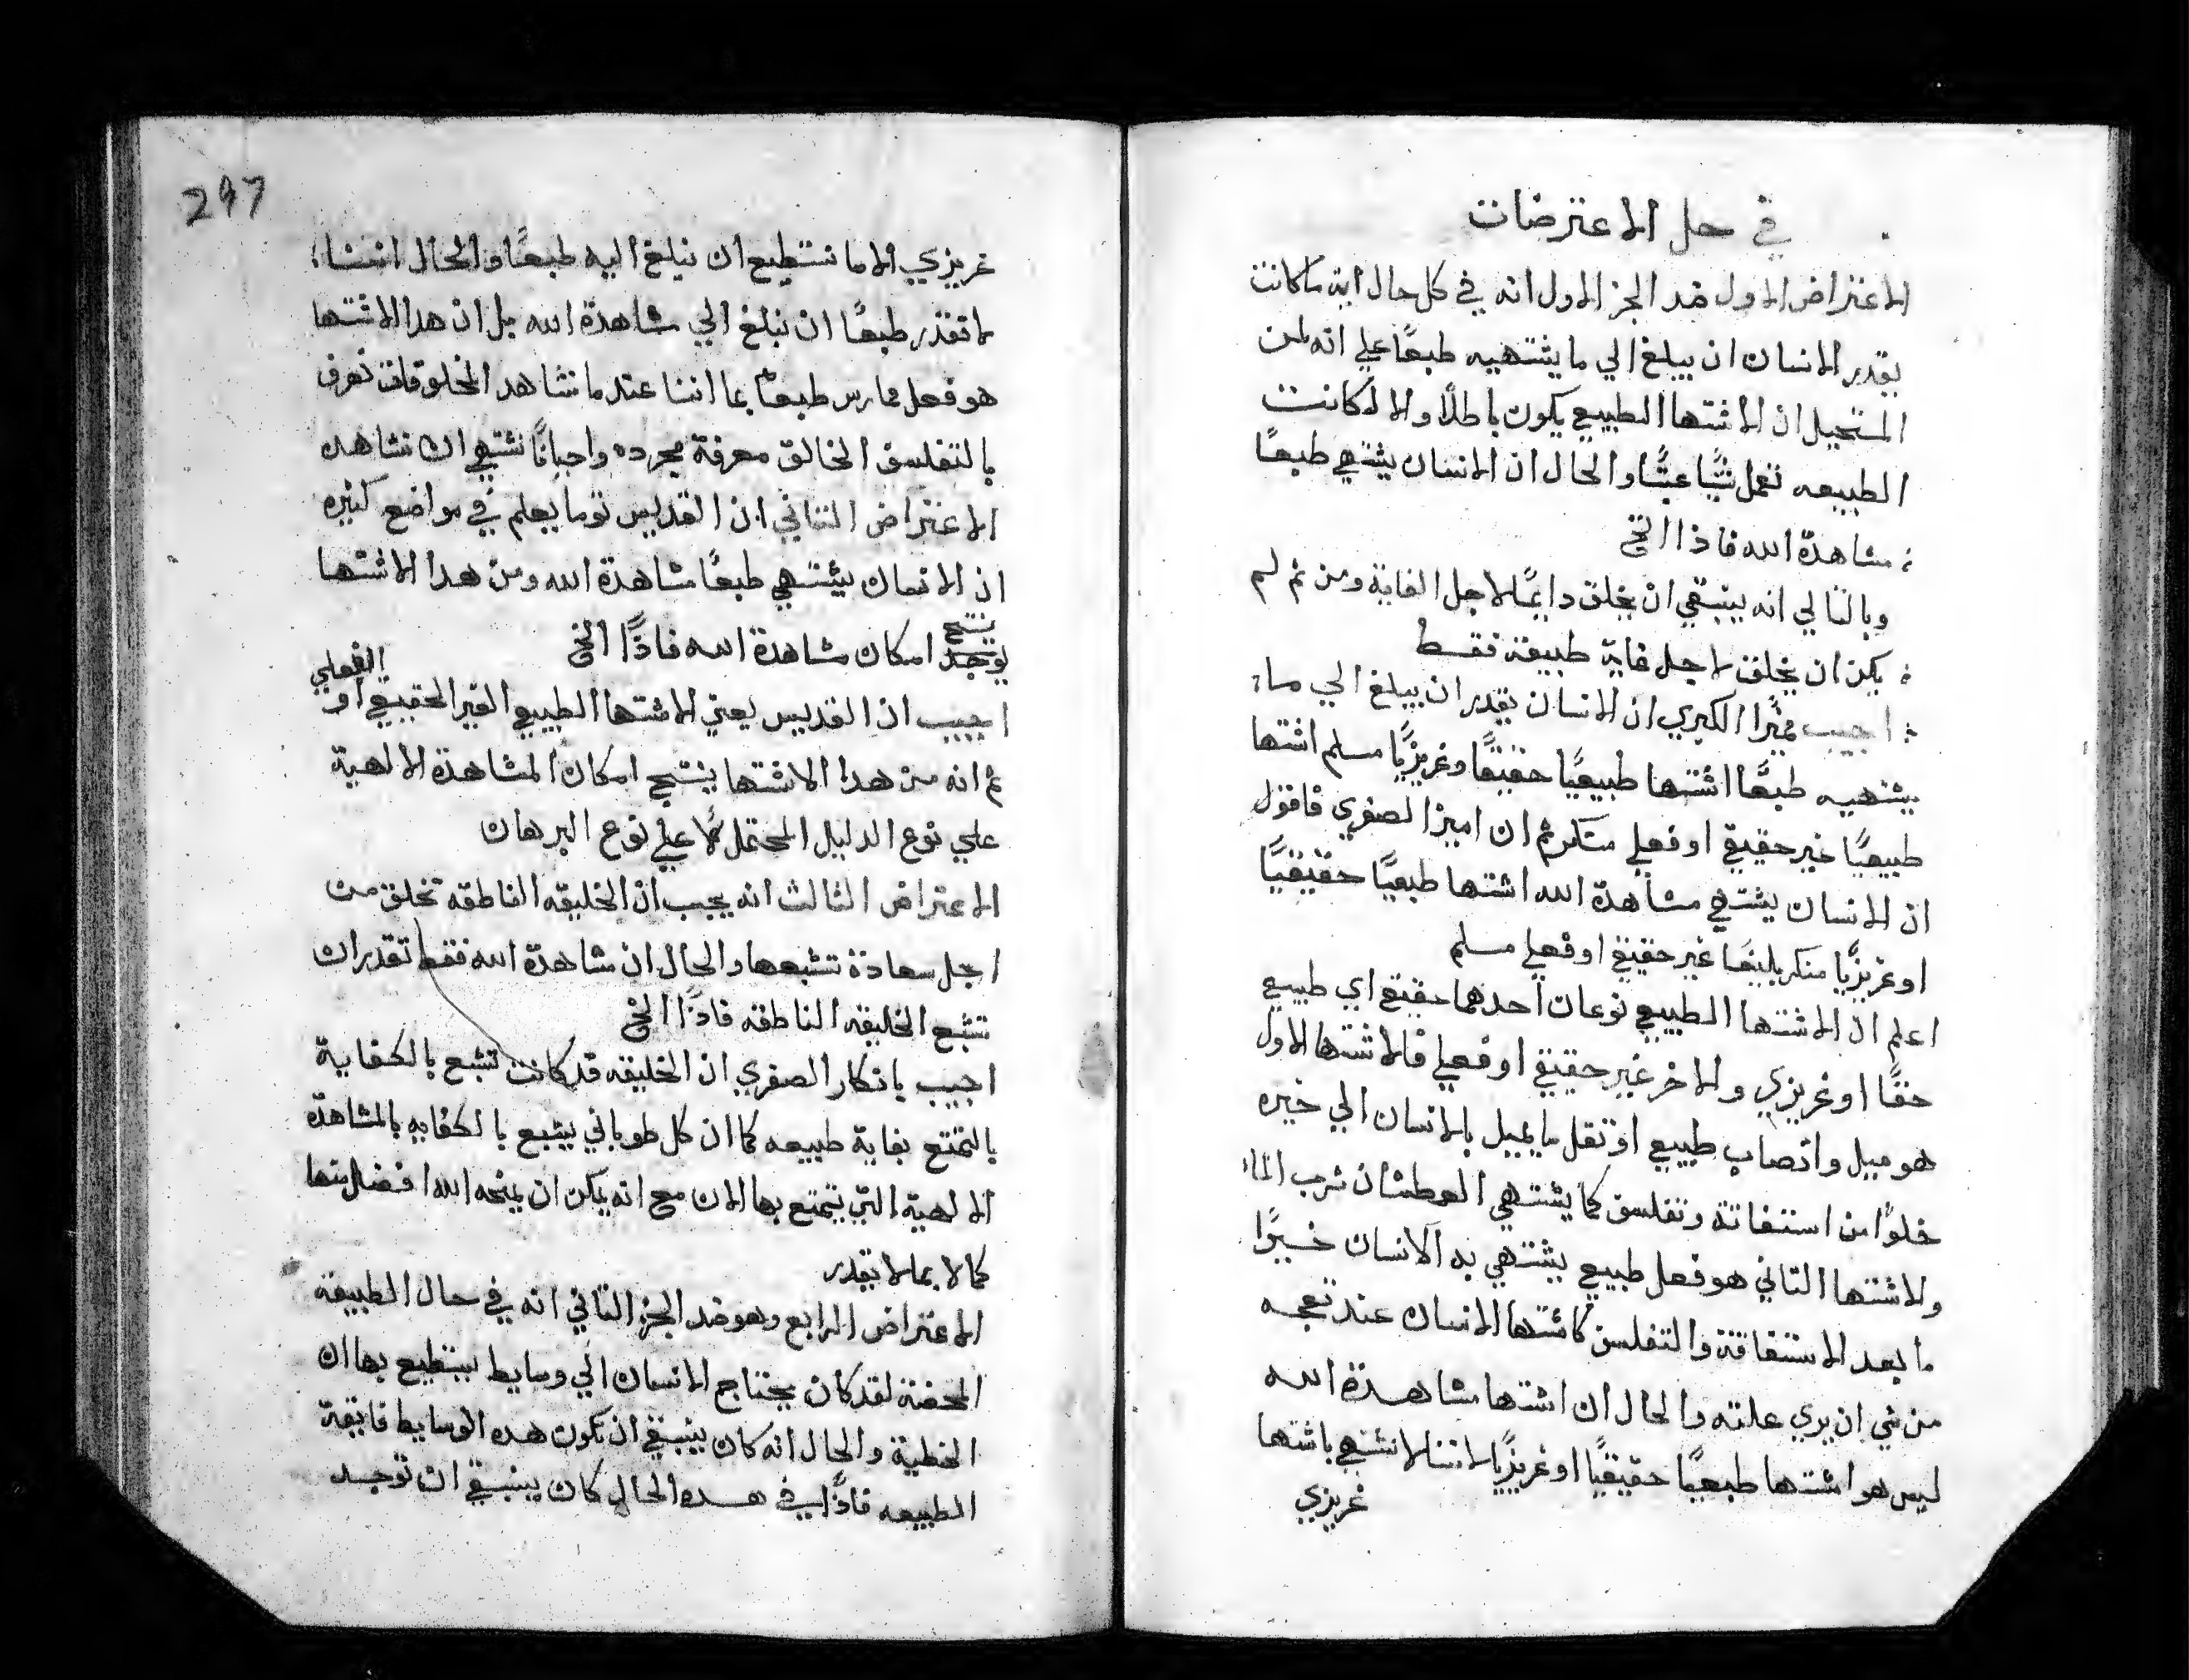 في حل الاعترضات
الاعتراض الاول ضد الجز الاول انه في كل حال اية ما كانت
يقدر الانسان ان يبلغ الي ما يشتهيه طبعًا علي انه لمن
المستحيل ان الاشتها الطبيعي يكون باطلًا والا لكانت
الطبيعه تعمل شيًا عبثًا والحال ان الانسان يشتهي طبعًا
مشاهدة الله فاذا الخ
وبالتالي انه ينبغي ان يخلق دايمًا لاجل الغاية ومن ثم لم
يكن ان يخلق لاجل غاية طبيعة فقط
اجيب مميزا الكبري ان الانسان يقدر ان يبلغ الي ما
يشتهيه طبعًا اشتها طبيعيًا حقيقيًا وغريزيًا مسلم اشتها
طبيعيًا غير حقيقي او فعلي منكر ثم ان اميز الصغري فاقول
ان الانسان يشتهي مشاهدة الله اشتها طبعيًا حقيقيًا
او غريزيًا منكر بليغًا غير حقيقي او فعلي مسلم
اعلم ان الاشتها الطبيعي نوعان احدهما حقيقي اي طبيعي
حقًا او غريزي والاخر غير حقيقي او فعلي فالاشتها الاول
هو ميل وانصاب طبيعي او ثقل ما يميل بالانسان الي خيره
خلوًا من استفاقة وتفلسف كما يشتهي العطشان شرب الماء
والاشتها الثاني هو فعل طبيعي يشتهي به الانسان خيرًا
ما بعد الاستفاقة والتفلسف كاشتها الانسان عند تعجبه
من شي ان يري علته والحال ان اشتها مشاهدة الله
ليس هو اشتها طبعيًا حقيقيًا او غريزيًا لاننا لا نشتهي باشتها
غريزي
297
غريزي الا ما نستطيع ان نبلغ اليه طبعًا والحال اننا
لا نقدر طبعًا ان نبلغ الي مشاهدة الله بل ان هدا الاشتها
هو فعل ممارس طبعًا بما اننا عندما نشاهد المخلوقات نعرف
بالتفلسف الخالق معرفة مجرده واحيانًا نشتهي ان نشاهده
الاعتراض الثاني ان القديس توما يعلم في مواضع كثيره
ان الانسان يشتهي طبعًا مشاهدة الله ومن هدا الاشتها
ينتج
يوجد امكان مشاهدة الله فاذًا الخ
الفعلي
اجيب ان القديس يعني الاشتها الطبيعي الغير الحقيقي او
ثم انه من هدا الاشتها ينتج امكان المشاهدة الالهية
علي نوع الدليل المحتمل لا علي نوع البرهان
الاعتراض الثالث انه يجب ان الخليقه الناطقه تخلق من
اجل سعادة تشبعها والحال ان مشاهدة الله فقط تقدر ان
تشبع الخليقه الناطقه فاذًا الخ
اجيب بانكار الصغري ان الخليقه قد كانت تشبع بالكفاية
بالتمتع بغاية طبيعه كما ان كل طوباني يشبع بالكفايه بالمشاهدة
الالهية التي يتمتع بها الان مع انه يمكن ان يمنحه الله افضل منها
كمالا بما لا يقدر
الاعتراض الرابع وهو ضد الجز الثاني انه في حال الطبيعة
المحضة لقد كان يحتاج الانسان الي وسايط يستطيع بها ان
الخطية والحال انه كان ينبغي ان تكون هده الوسايط فايقة
الطبيعه فاذًا في هده الحال كان ينبغي ان توجد